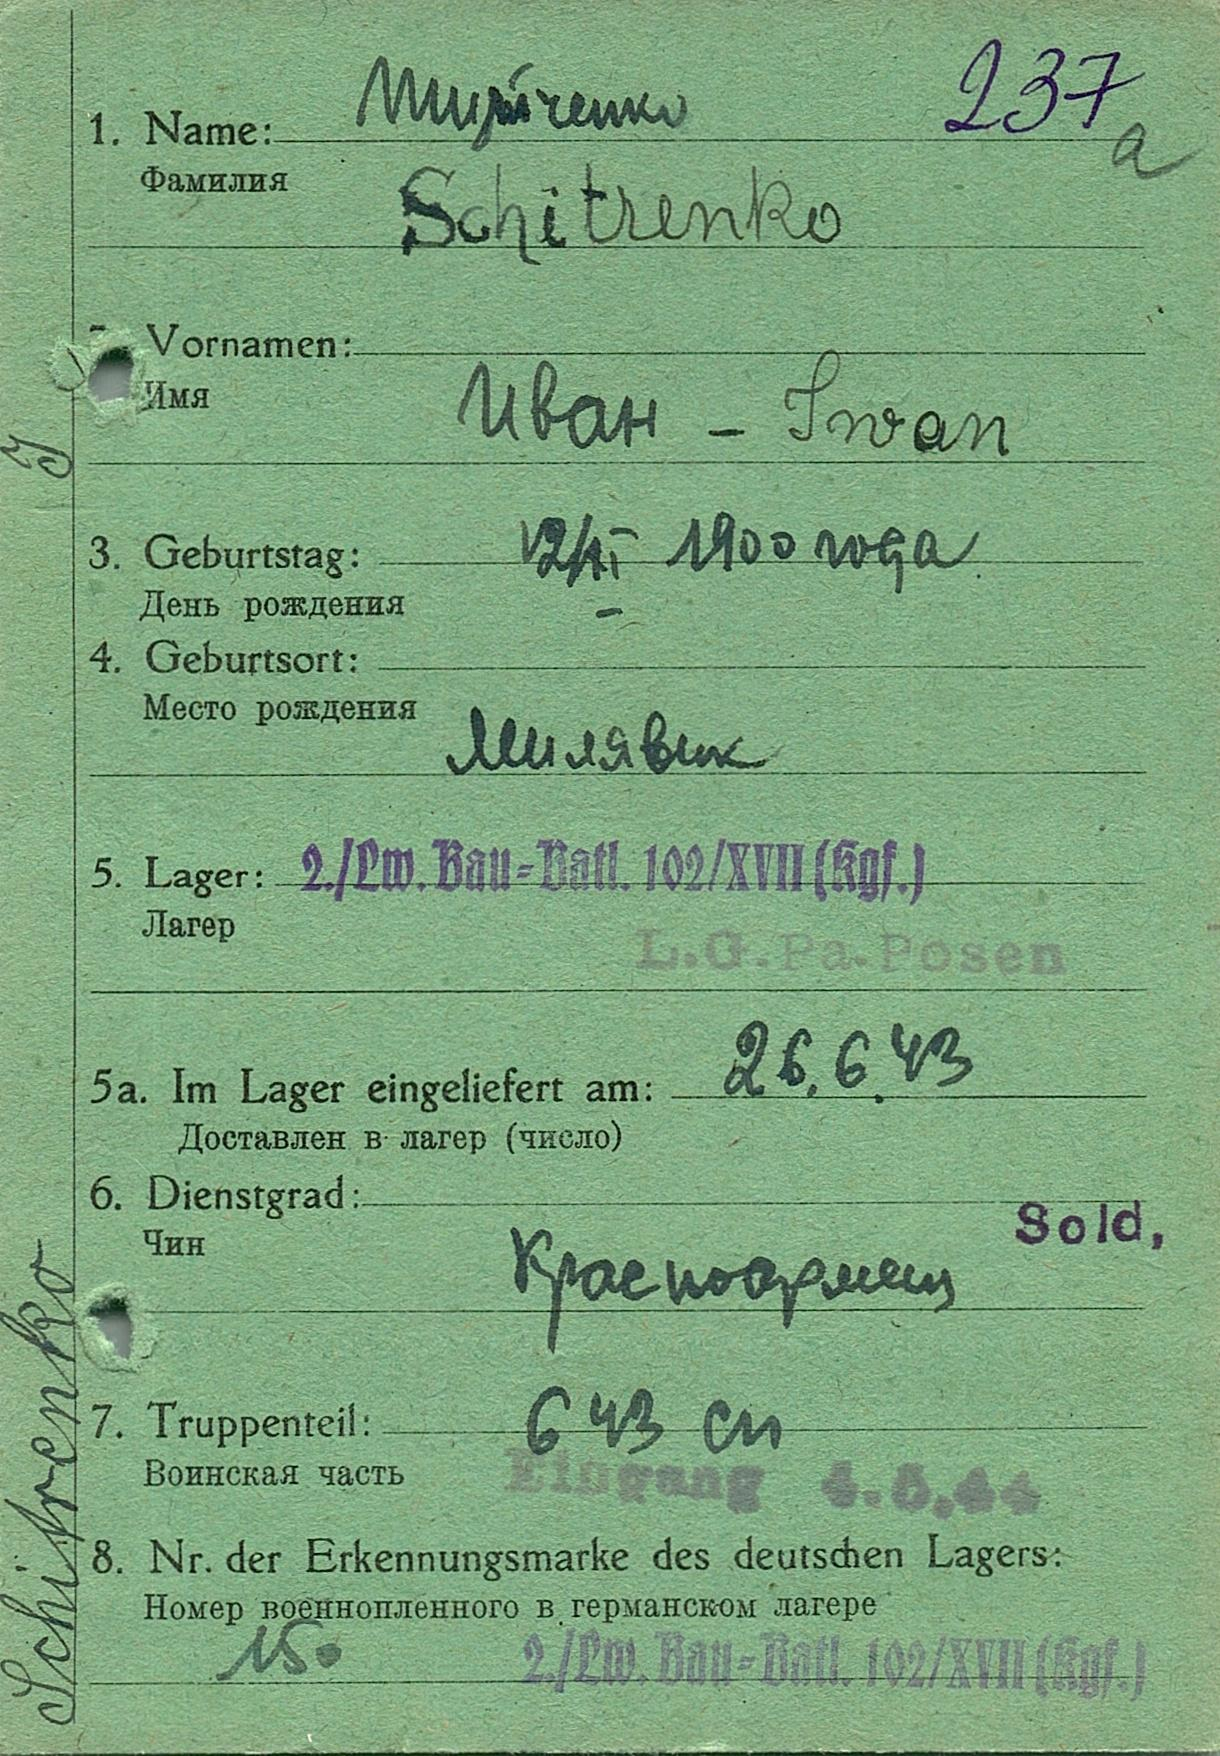 237
a
1. Name:
Фамилия
Schitrenko
Vornamen:
Имя
Иван - Iwan
3. Geburtstag: 1900 года
День рождения
4. Geburtsort:
Место рождения
Милявик
5. Lager: 2./Lw. Bau=Batl. 102/XVII (Kgf.)
Лагер
L.G.Pa.Posen
5a. Im Lager eingeliefert am: 26.6.43
Доставлен в лагер (число)
6. Dienstgrad:
Чин
Sold.
Красноармеец
7. Truppenteil: 643 сп
Воинская часть
Eingang 4.5.44
8. Nr. der Erkennungsmarke des deutschen Lagers:
Номер военнопленного в германском лагере
150
2./Lw. Bau=Batl. 102/XVII (Kgf.)
Schitrenko J